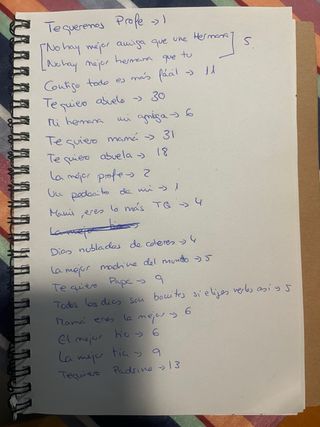 Te queremos Profe → 1
[No hay mejor amiga que una Hermana
No hay mejor hermana que tú] 5
Contigo todo es más fácil → 11
Te quiero abuelo → 30
Mi hermana mi amiga → 6
Te quiero mamá → 31
Te quiero abuela → 18
La mejor profe → 2
Un pedacito de mi → 1
Mami, eres lo más TQ → 4
Dias nublados de colores → 4
La mejor madrina del mundo → 5
Te quiero Papa → 9
Todos los dias son bonitos si eliges verlos asi → 5
Mamá eres la mejor → 6
El mejor tio → 6
La mejor tia → 9
Te quiero Padrino → 13